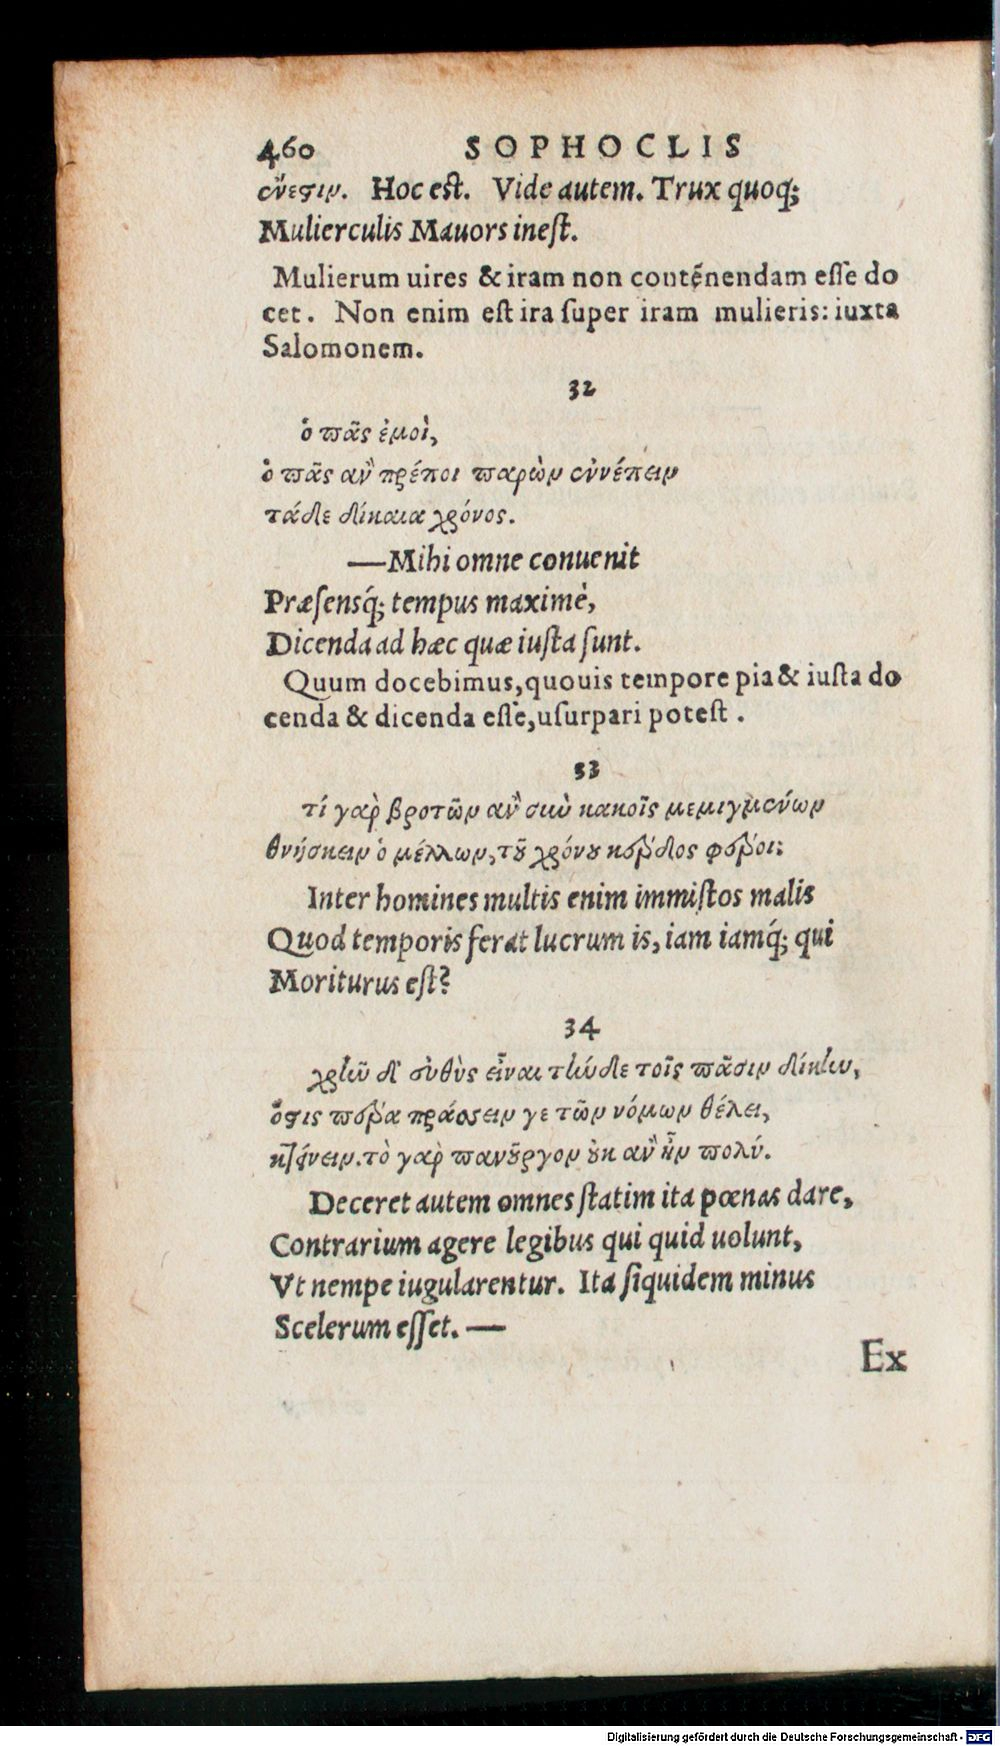 460 SOPHOCLIS
ἔνεστιν. Hoc est. Vide autem. Trux quoq;
Mulierculis Mauors inest.
Mulierum uires & iram non contẽnendam esse do
cet. Non enim est ira super iram mulieris: iuxta
Salomonem.
32
ὁ πᾶς ἐμοὶ,
ὁ πᾶς ἂν πρέποι παρὼν ἐννέπειν
τάδε δίκαια χρόνος.
—Mihi omne conuenit
Præsensq́; tempus maximè,
Dicenda ad hæc quæ iusta sunt.
Quum docebimus, quouis tempore pia & iusta do
cenda & dicenda esse, usurpari potest.
33
τί γὰρ βροτῶν ἂν σὺν κακοῖς μεμιγμένων
θνήσκειν ὁ μέλλων, τοῦ χρόνου κέρδος φέροι;
Inter homines multis enim immistos malis
Quod temporis ferat lucrum is, iam iamq́; qui
Moriturus est?
34
χρῆν δ' εὐθὺς εἶναι τήνδε τοῖς πᾶσιν δίκην,
ὅστις πέρα πράσσειν γε τῶν νόμων θέλει,
κτείνειν. τὸ γὰρ πανοῦργον οὐκ ἂν ἦν πολύ.
Deceret autem omnes statim ita pœnas dare,
Contrarium agere legibus qui quid uolunt,
Vt nempe iugularentur. Ita siquidem minus
Scelerum esset. —
Ex
Digitalisierung gefördert durch die Deutsche Forschungsgemeinschaft - DFG